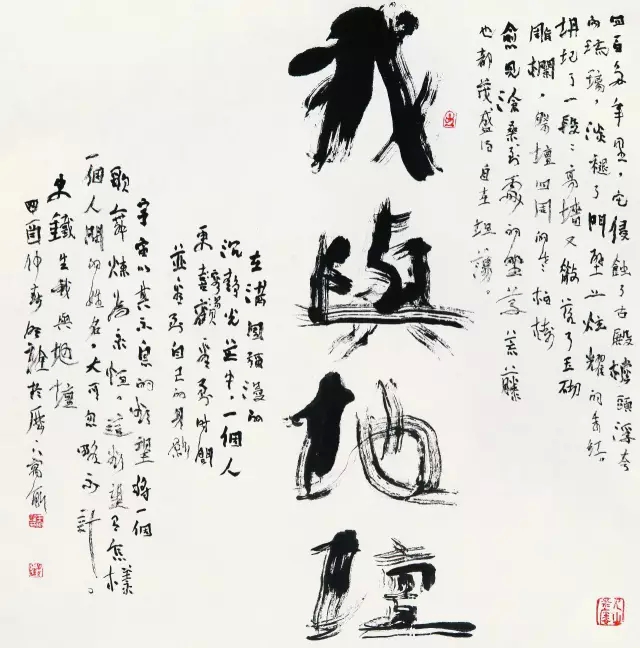 四百多年里，它侵蝕了古殿檐頭浮夸
的琉璃，淡褪了門壁上炫耀的朱红。
坍圮了一段〻高墻又散落了玉砌
雕欄，祭壇四周的老柏樹
愈見滄桑到處的野草荒藤
也都茂盛得自在坦蕩。
我與地壇
在满園弥漫的
沉静光芒中，一個人
更 看到时間
並看到自己的身影
宇宙以其不息的欲望將一個
歌舞煉為永恒。這欲望有怎樣
一個人間的姓名，大可忽略不計。
史鐵生我與地壇
酉仲春 於